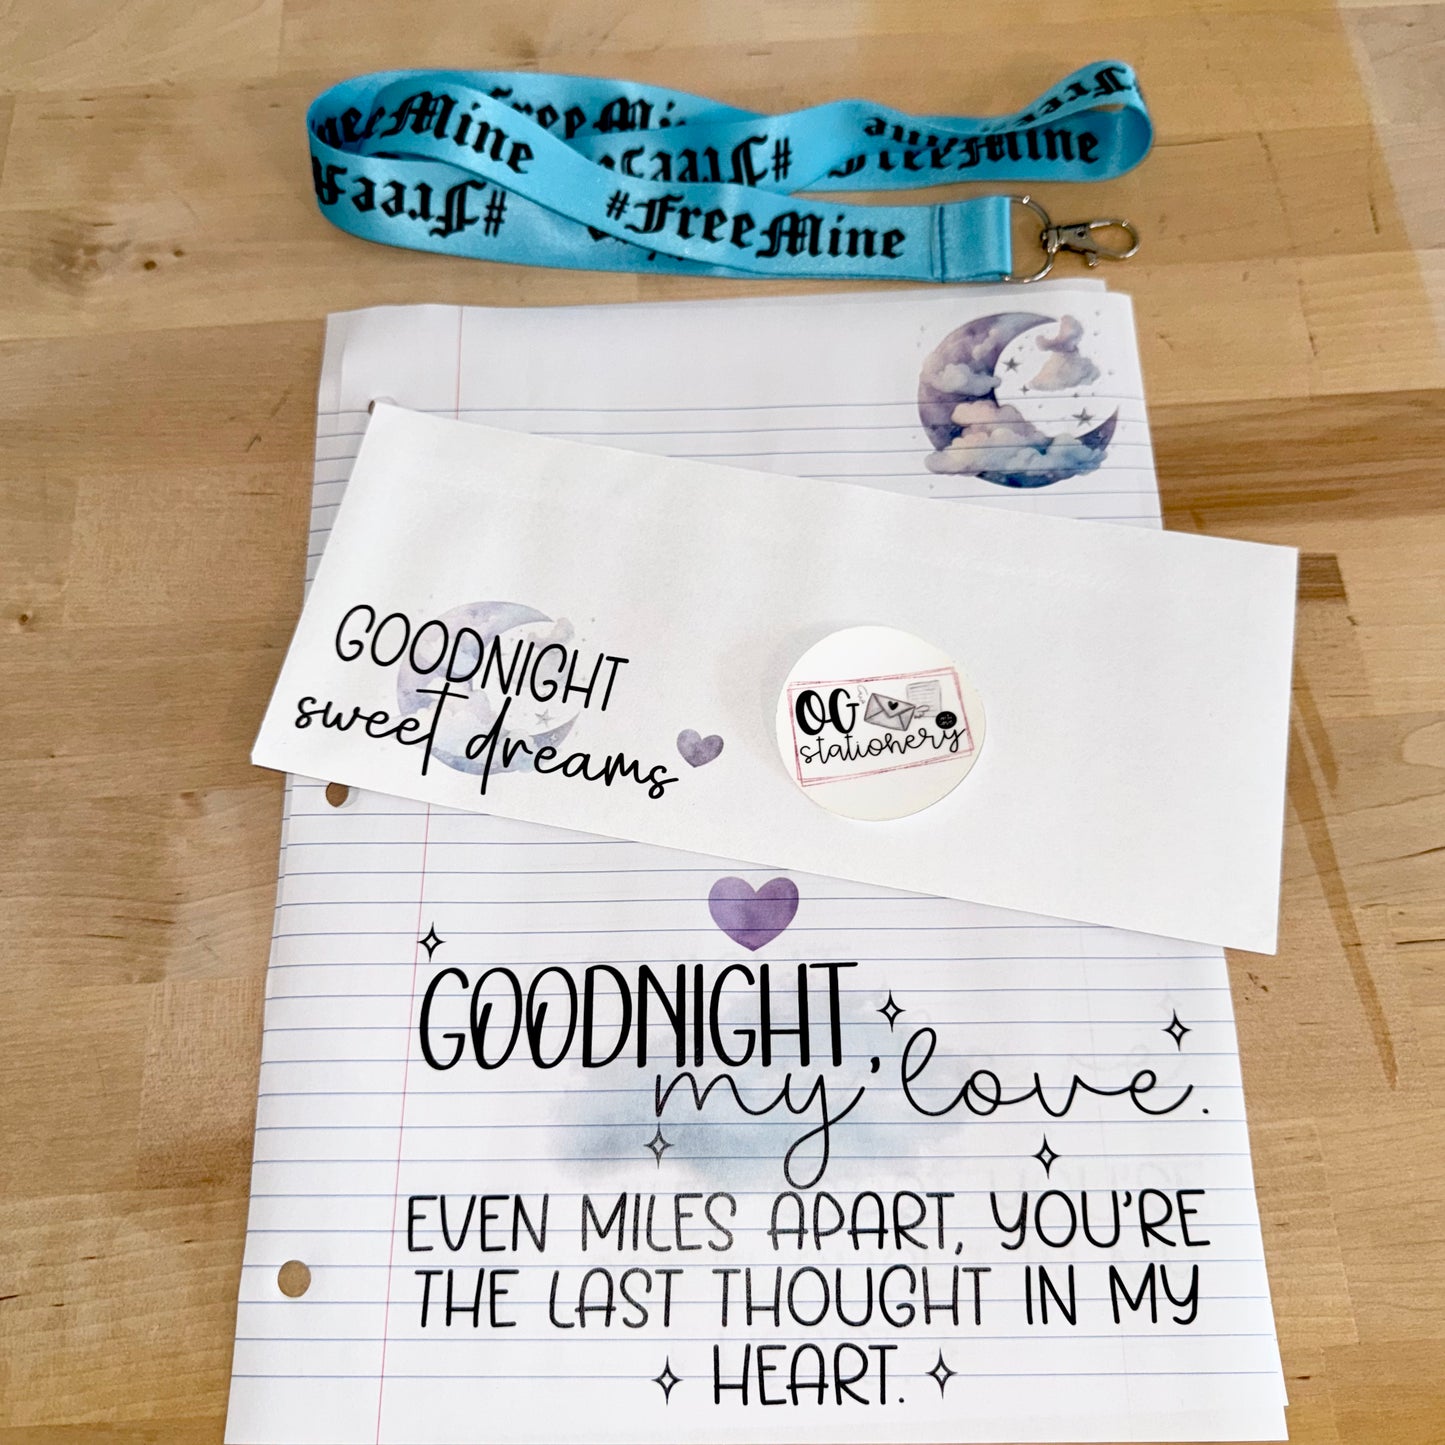 #FreeMine
#FreeMine
#FreeMine
GOODNIGHT
sweet dreams
OG
stationery
GOODNIGHT,
my love.
EVEN MILES APART, YOU'RE
THE LAST THOUGHT IN MY
HEART.